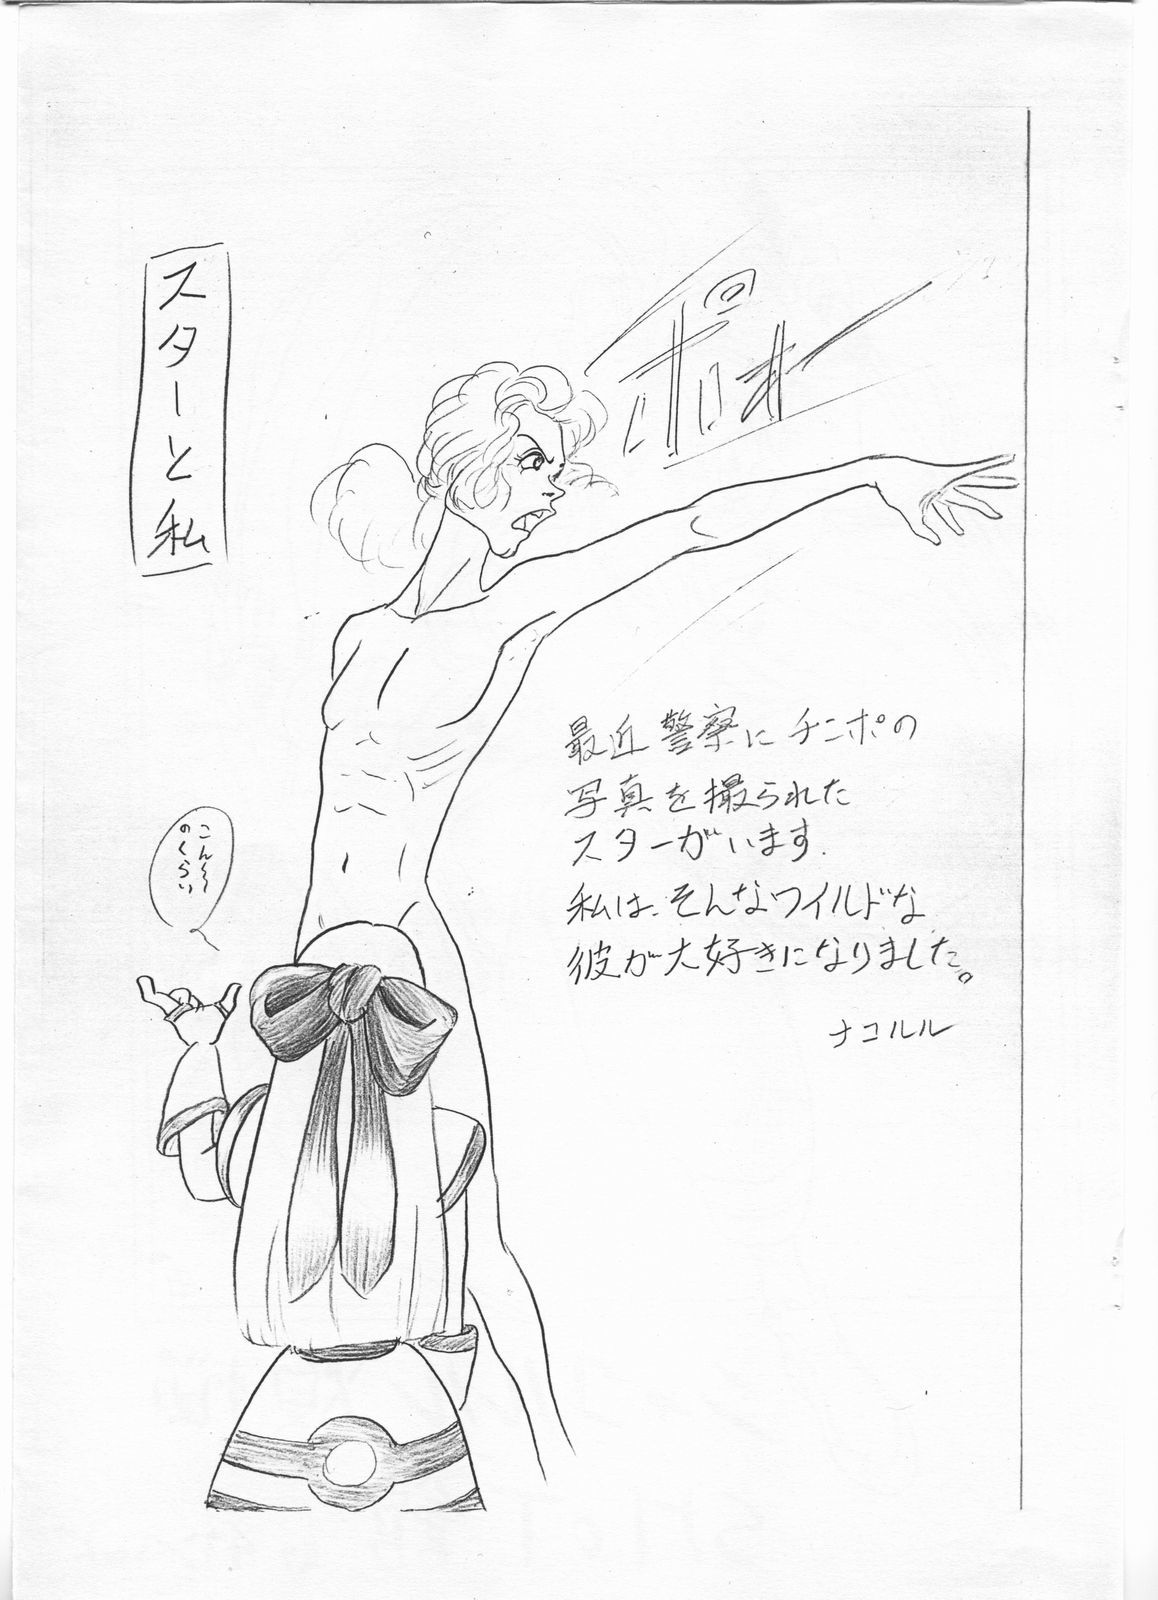 スターと私
最近警察にチンポの
写真を撮られた
スターがいます.
私は、そんなワイルドな
彼が大好きになりました。
ナコルル
こん〜
のくらい